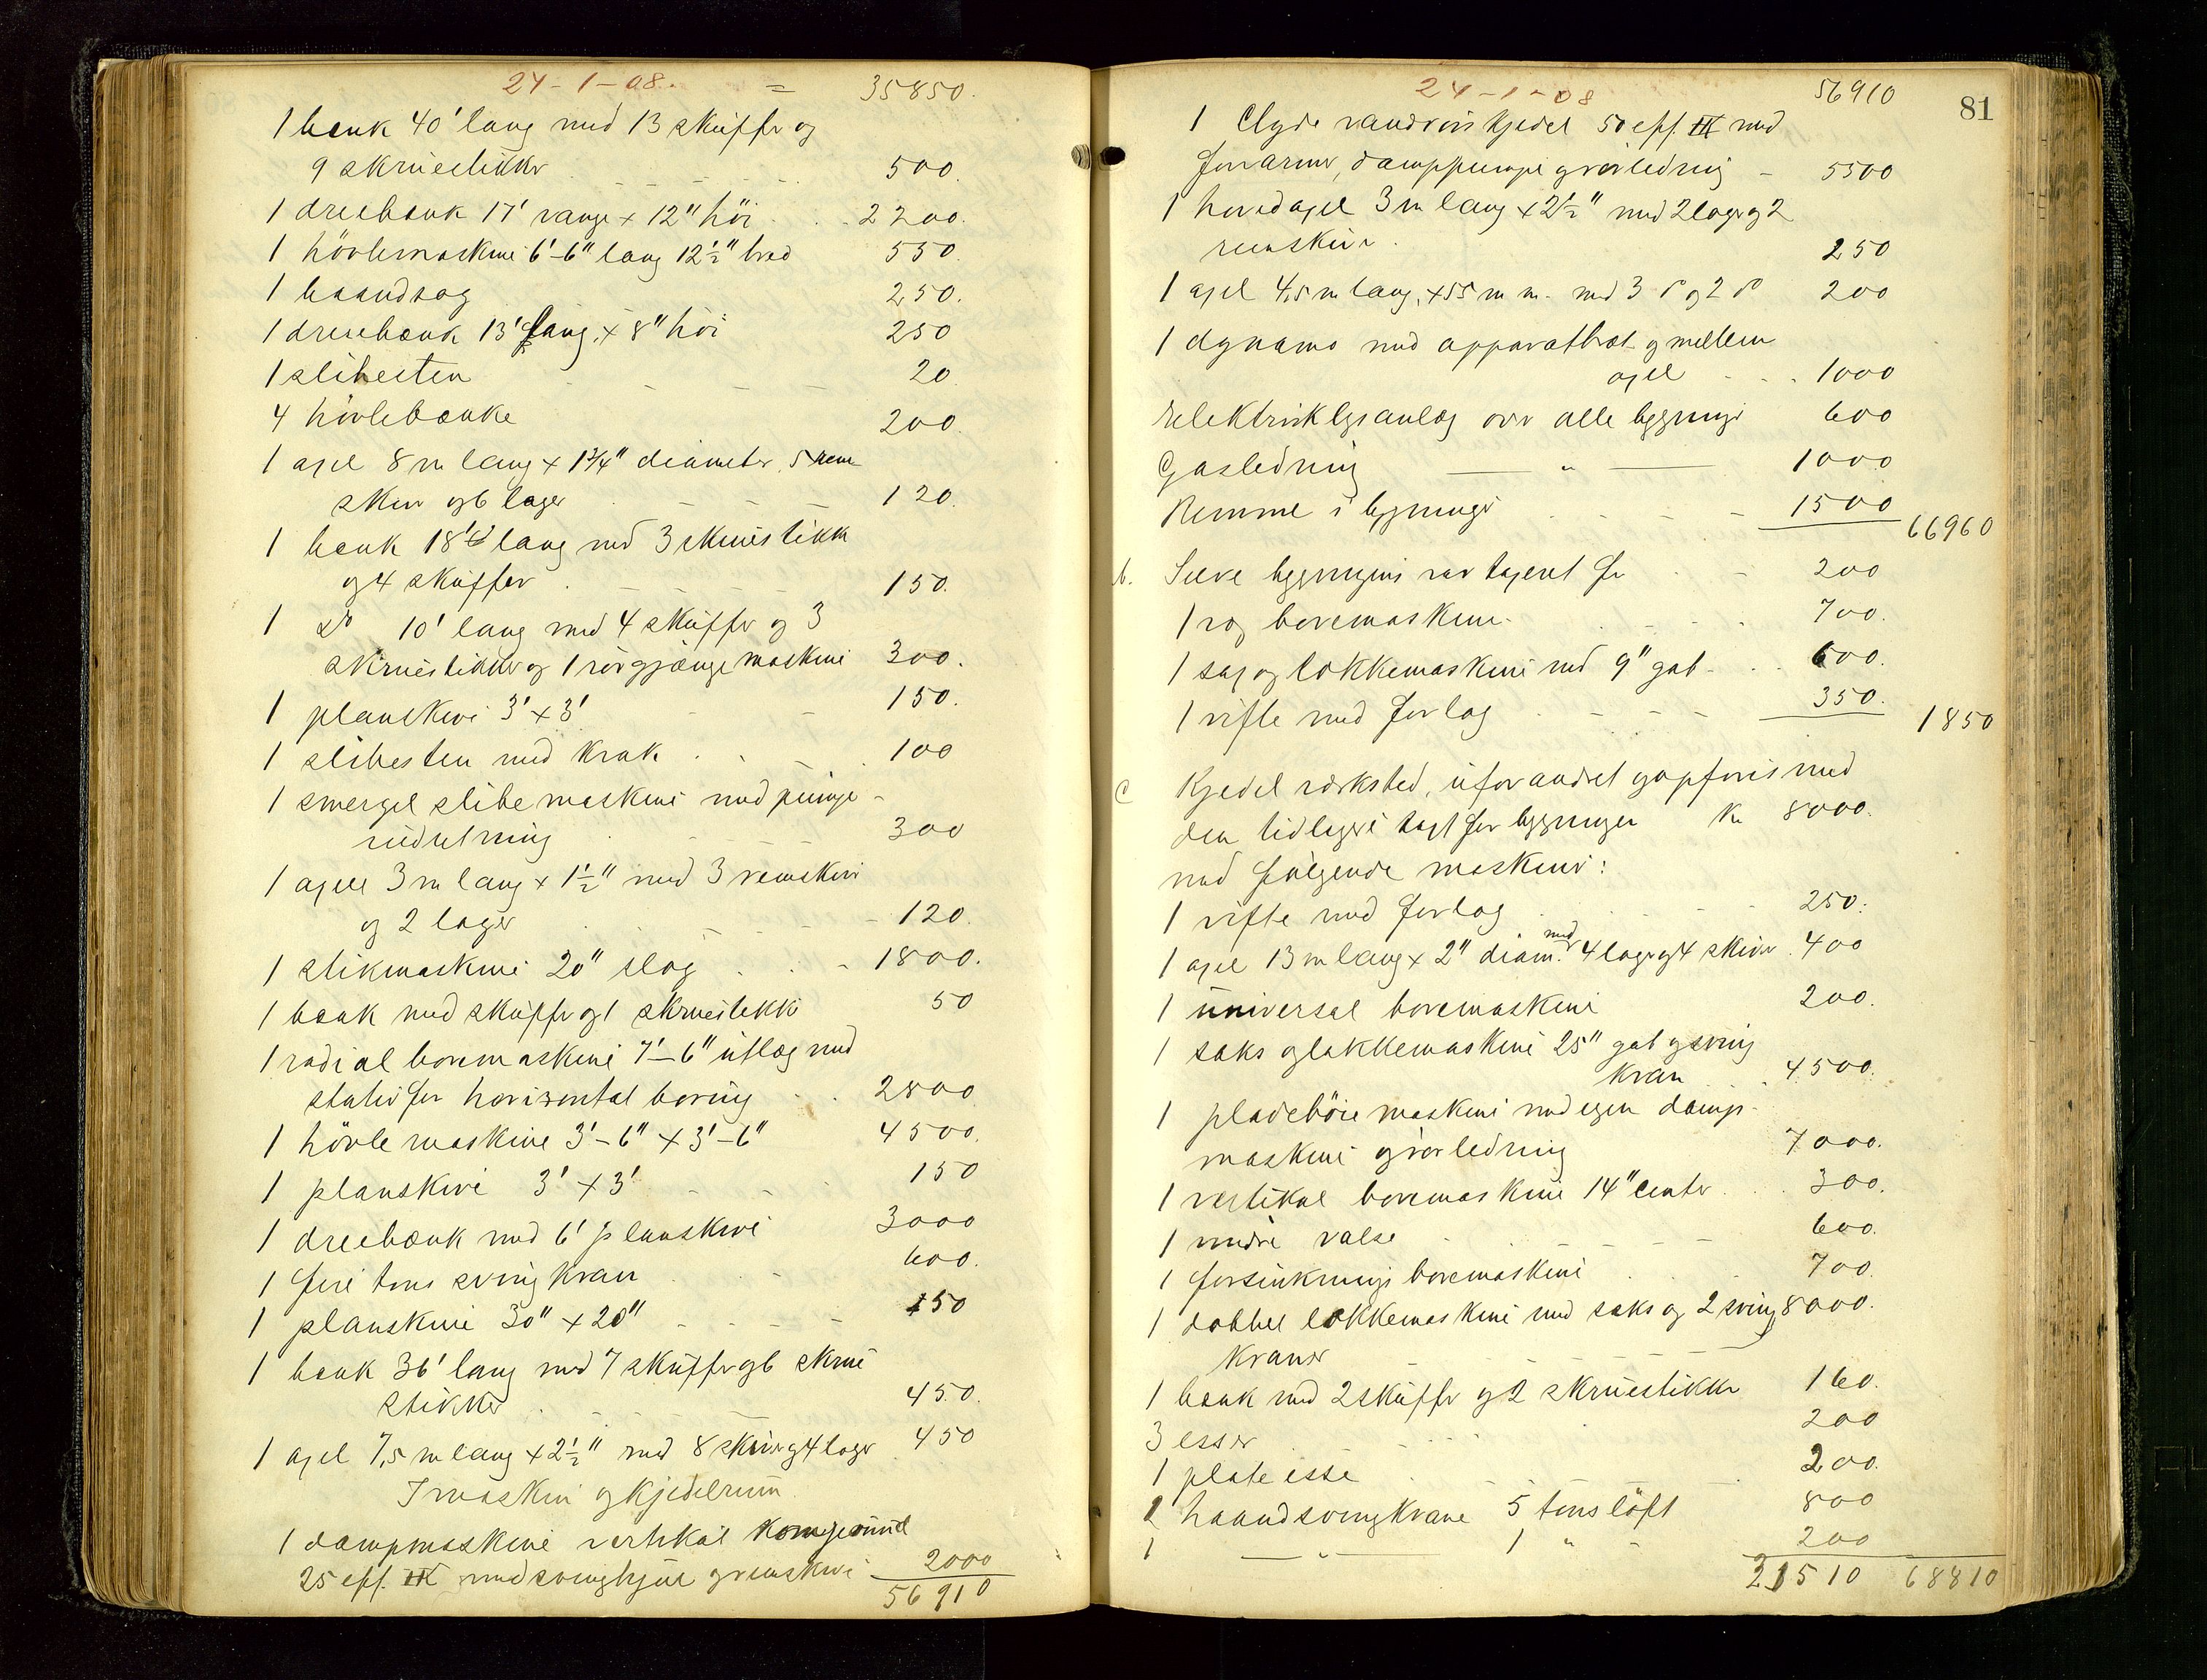 24-1-08. = 35850.
1 bænk 40' lang med 13 skuffer og
9 skruestikker 500.
1 dreiebænk 17' vange x 12" höi 2200.
1 hövlemaskine 6'-6" lang 12½" bred 550.
1 baandsag 250.
1 dreiebænk 13' lang, x 8" höi 250
1 slibesten 20
4 hövlebænke 200
1 axel 8 m lang x 1¾" diameter, 5 rem-
skiver og 6 lager 120.
1 bænk 18' lang med 3 skruestikker
og 4 skuffer 150.
1 do 10' lang med 4 skuffer og 3
skruestikker og 1 rörgjænge maskine 300.
1 planskive 3' x 3' 150.
1 slibesten med krak 100
1 smergel slibemaskine med pumpe-
indretning 300
1 axel 3 m lang x 1½" med 3 remskiver
og 2 lager 120.
1 stikmaskine 20" slag 1800.
1 bænk med skuffer og 1 skruestikke 50
1 radial boremaskine 7'-6" utlæg med
stativ for horisontal boring 2800
1 hövle maskine 3'-6" x 3'-6" 4500.
1 planskive 3' x 3' 150
1 dreiebænk med 6' planskive 3000
1 fire tons svingkran 600.
1 planskive 30" x 20" 150
1 bænk 36' lang med 7 skuffer og 6 skrue
stikker 450.
1 axel 7,5 m lang x 2½" med 8 skiver og 4 lager 450
I maskin og kjedelrum
1 dampmaskine vertikal kompound
25 eff. HK med svinghjul og remskive 2000
56910
24-1-08 56910
81
1 Clyde vandrörskjedel 50 eff. HK med
forvarmer, damppumpe og rörledning 5500
1 hovedaxel 3 m lang x 2½" med 2 lager og 2
remskiver 250
1 axel 4,5 m lang, x 55 m m. med 3 do og 2 do 200
1 dynamo med apparatbræt og mellem
axel 1000
Elektrisk lysanlæg over alle bygninger 600
Gasledning — " — 1000
Remme i bygninger 1500
66960
b. Selve bygningens var taxeret for 200
1 væg boremaskine 700.
1 sax og lokkemaskine med 9" gab 600.
1 vifte med forlag 350.
1850
c Kjedel værksted, uforandret og opföres med
den tidligere taxt for bygningen Kr 8000.
med fölgende maskiner:
1 vifte med forlag 250.
1 axel 13 m lang x 2" diam. med 4 lager og 4 skiver 400
1 universal boremaskine 200.
1 saks og lokkemaskine 25" gab og sving
kran 4500.
1 pladeböie maskine med egen damp-
maskine og rörledning 7000.
1 vertikal boremaskine 14" center 300.
1 mindre valse 600.
1 forsinknings boremaskine 700
1 dobbel lokkemaskine med saks og 2 sving 8000.
kraner
1 bænk med 2 skuffer og 2 skruestikker 160.
3 esser 200
1 plate esse 200.
2 haandsvingkrane 5 tons löft 800
1 — " — 1 " " 200
31510 68810